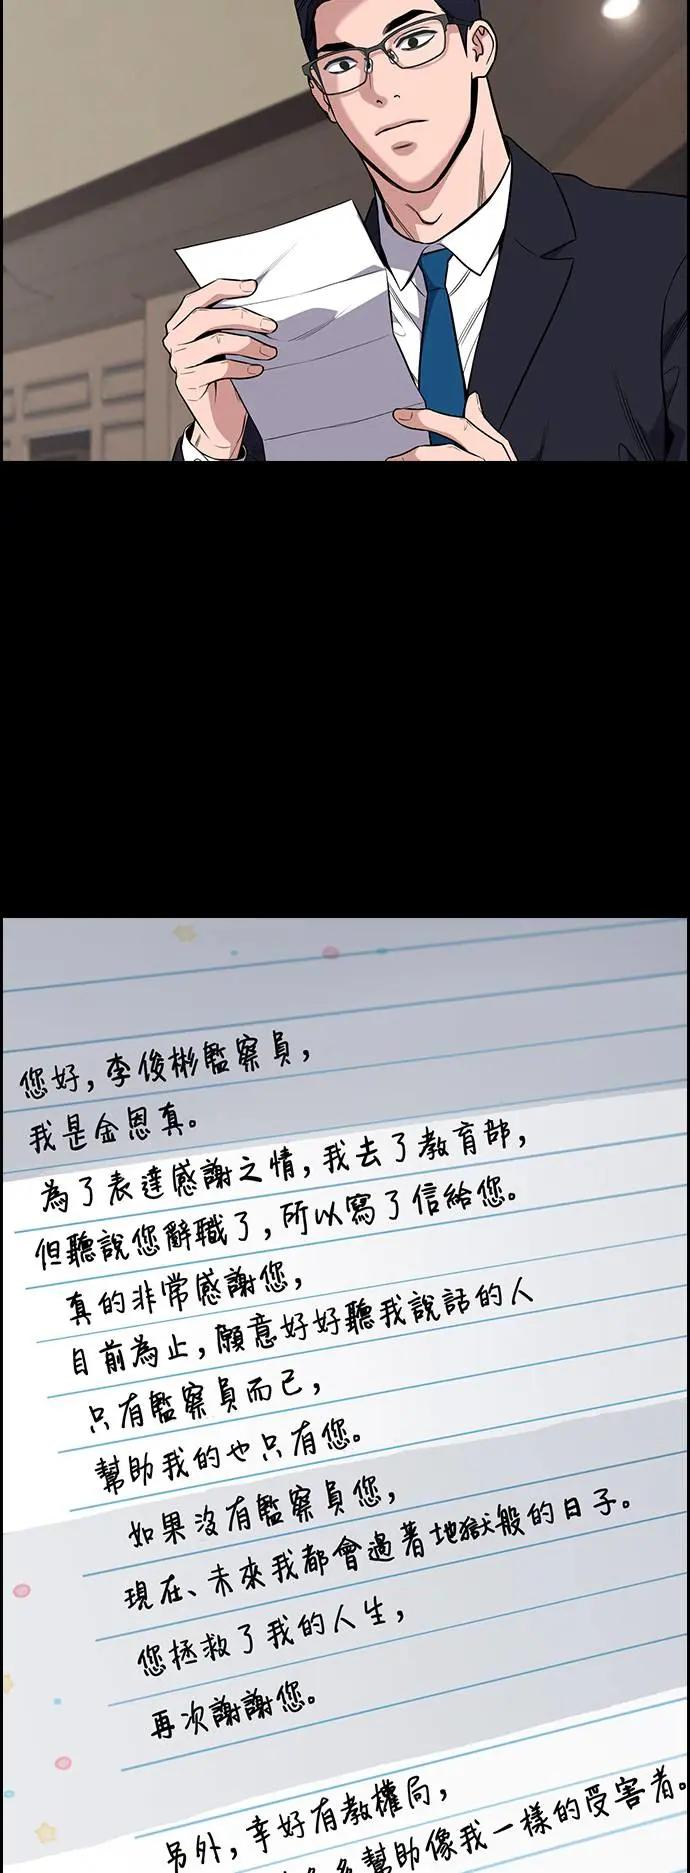 您好，李俊彬監察員，
我是金恩真。
為了表達感謝之情，我去了教育部，
但聽說您辭職了，所以寫了信給您。
真的非常感謝您，
目前為止，願意好好聽我說話的人
只有監察員而已，
幫助我的也只有您。
如果沒有監察員您，
現在、未來我都會過著地獄般的日子。
您拯救了我的人生，
再次謝謝您。
另外，幸好有教權局，
多多幫助像我一樣的受害者。